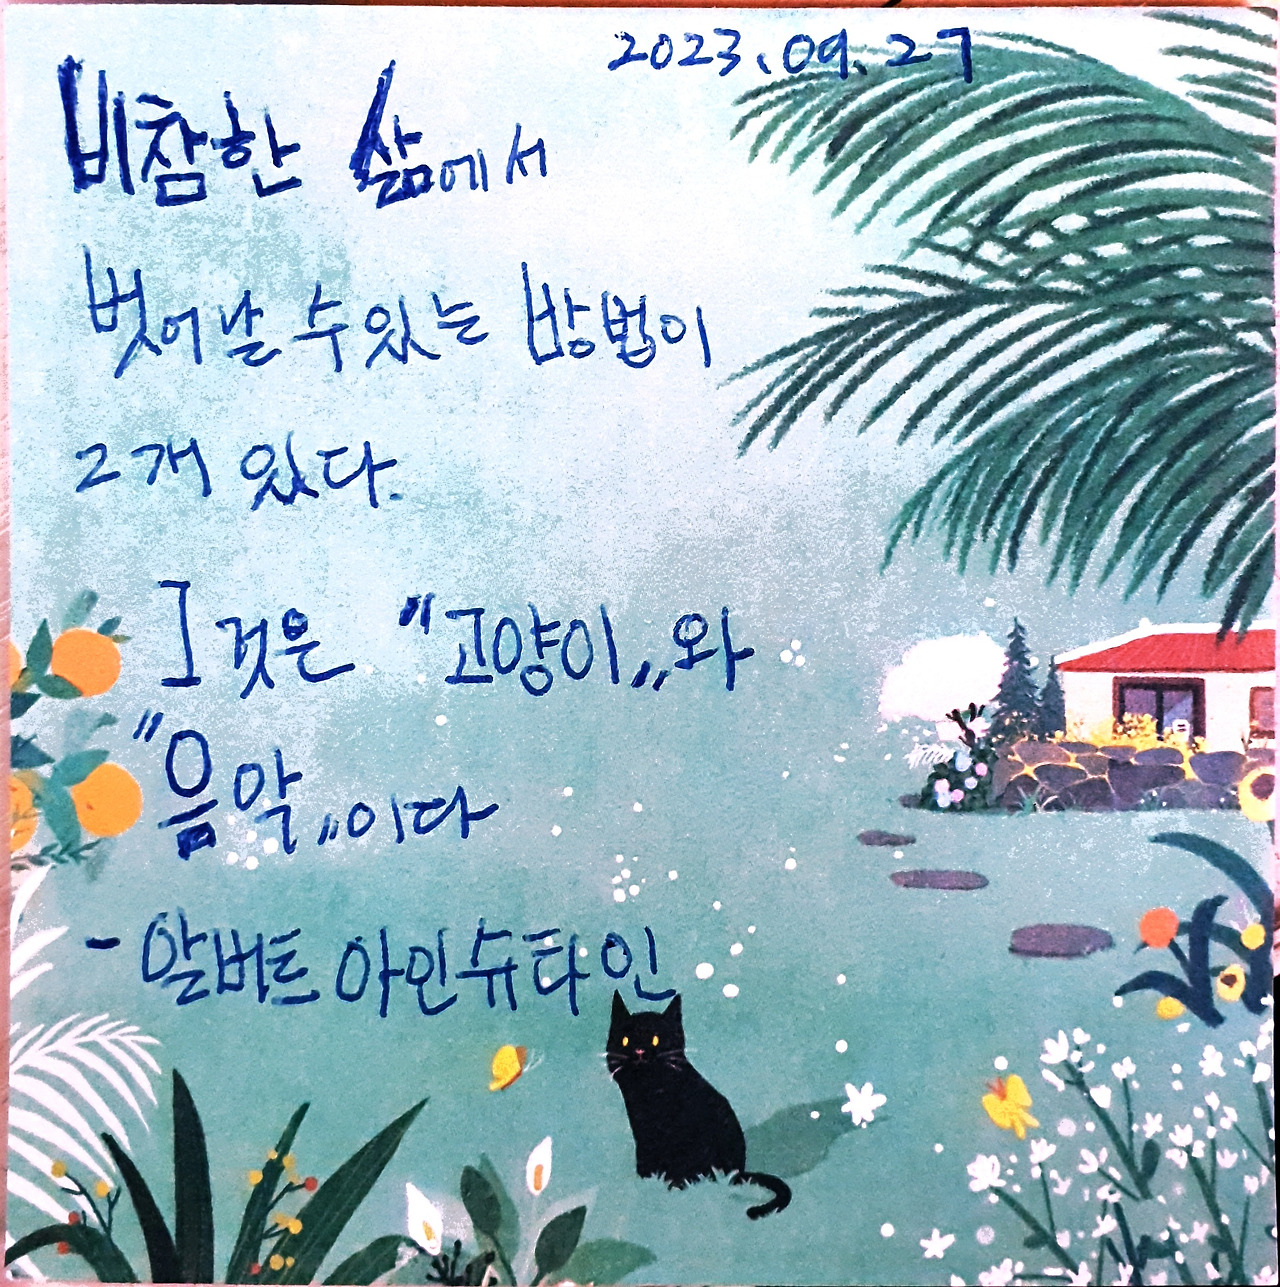 2023. 09. 27
비참한 삶에서
벗어날 수 있는 방법이
2개 있다.
그것은 "고양이"와
"음악"이다
- 알버트 아인슈타인